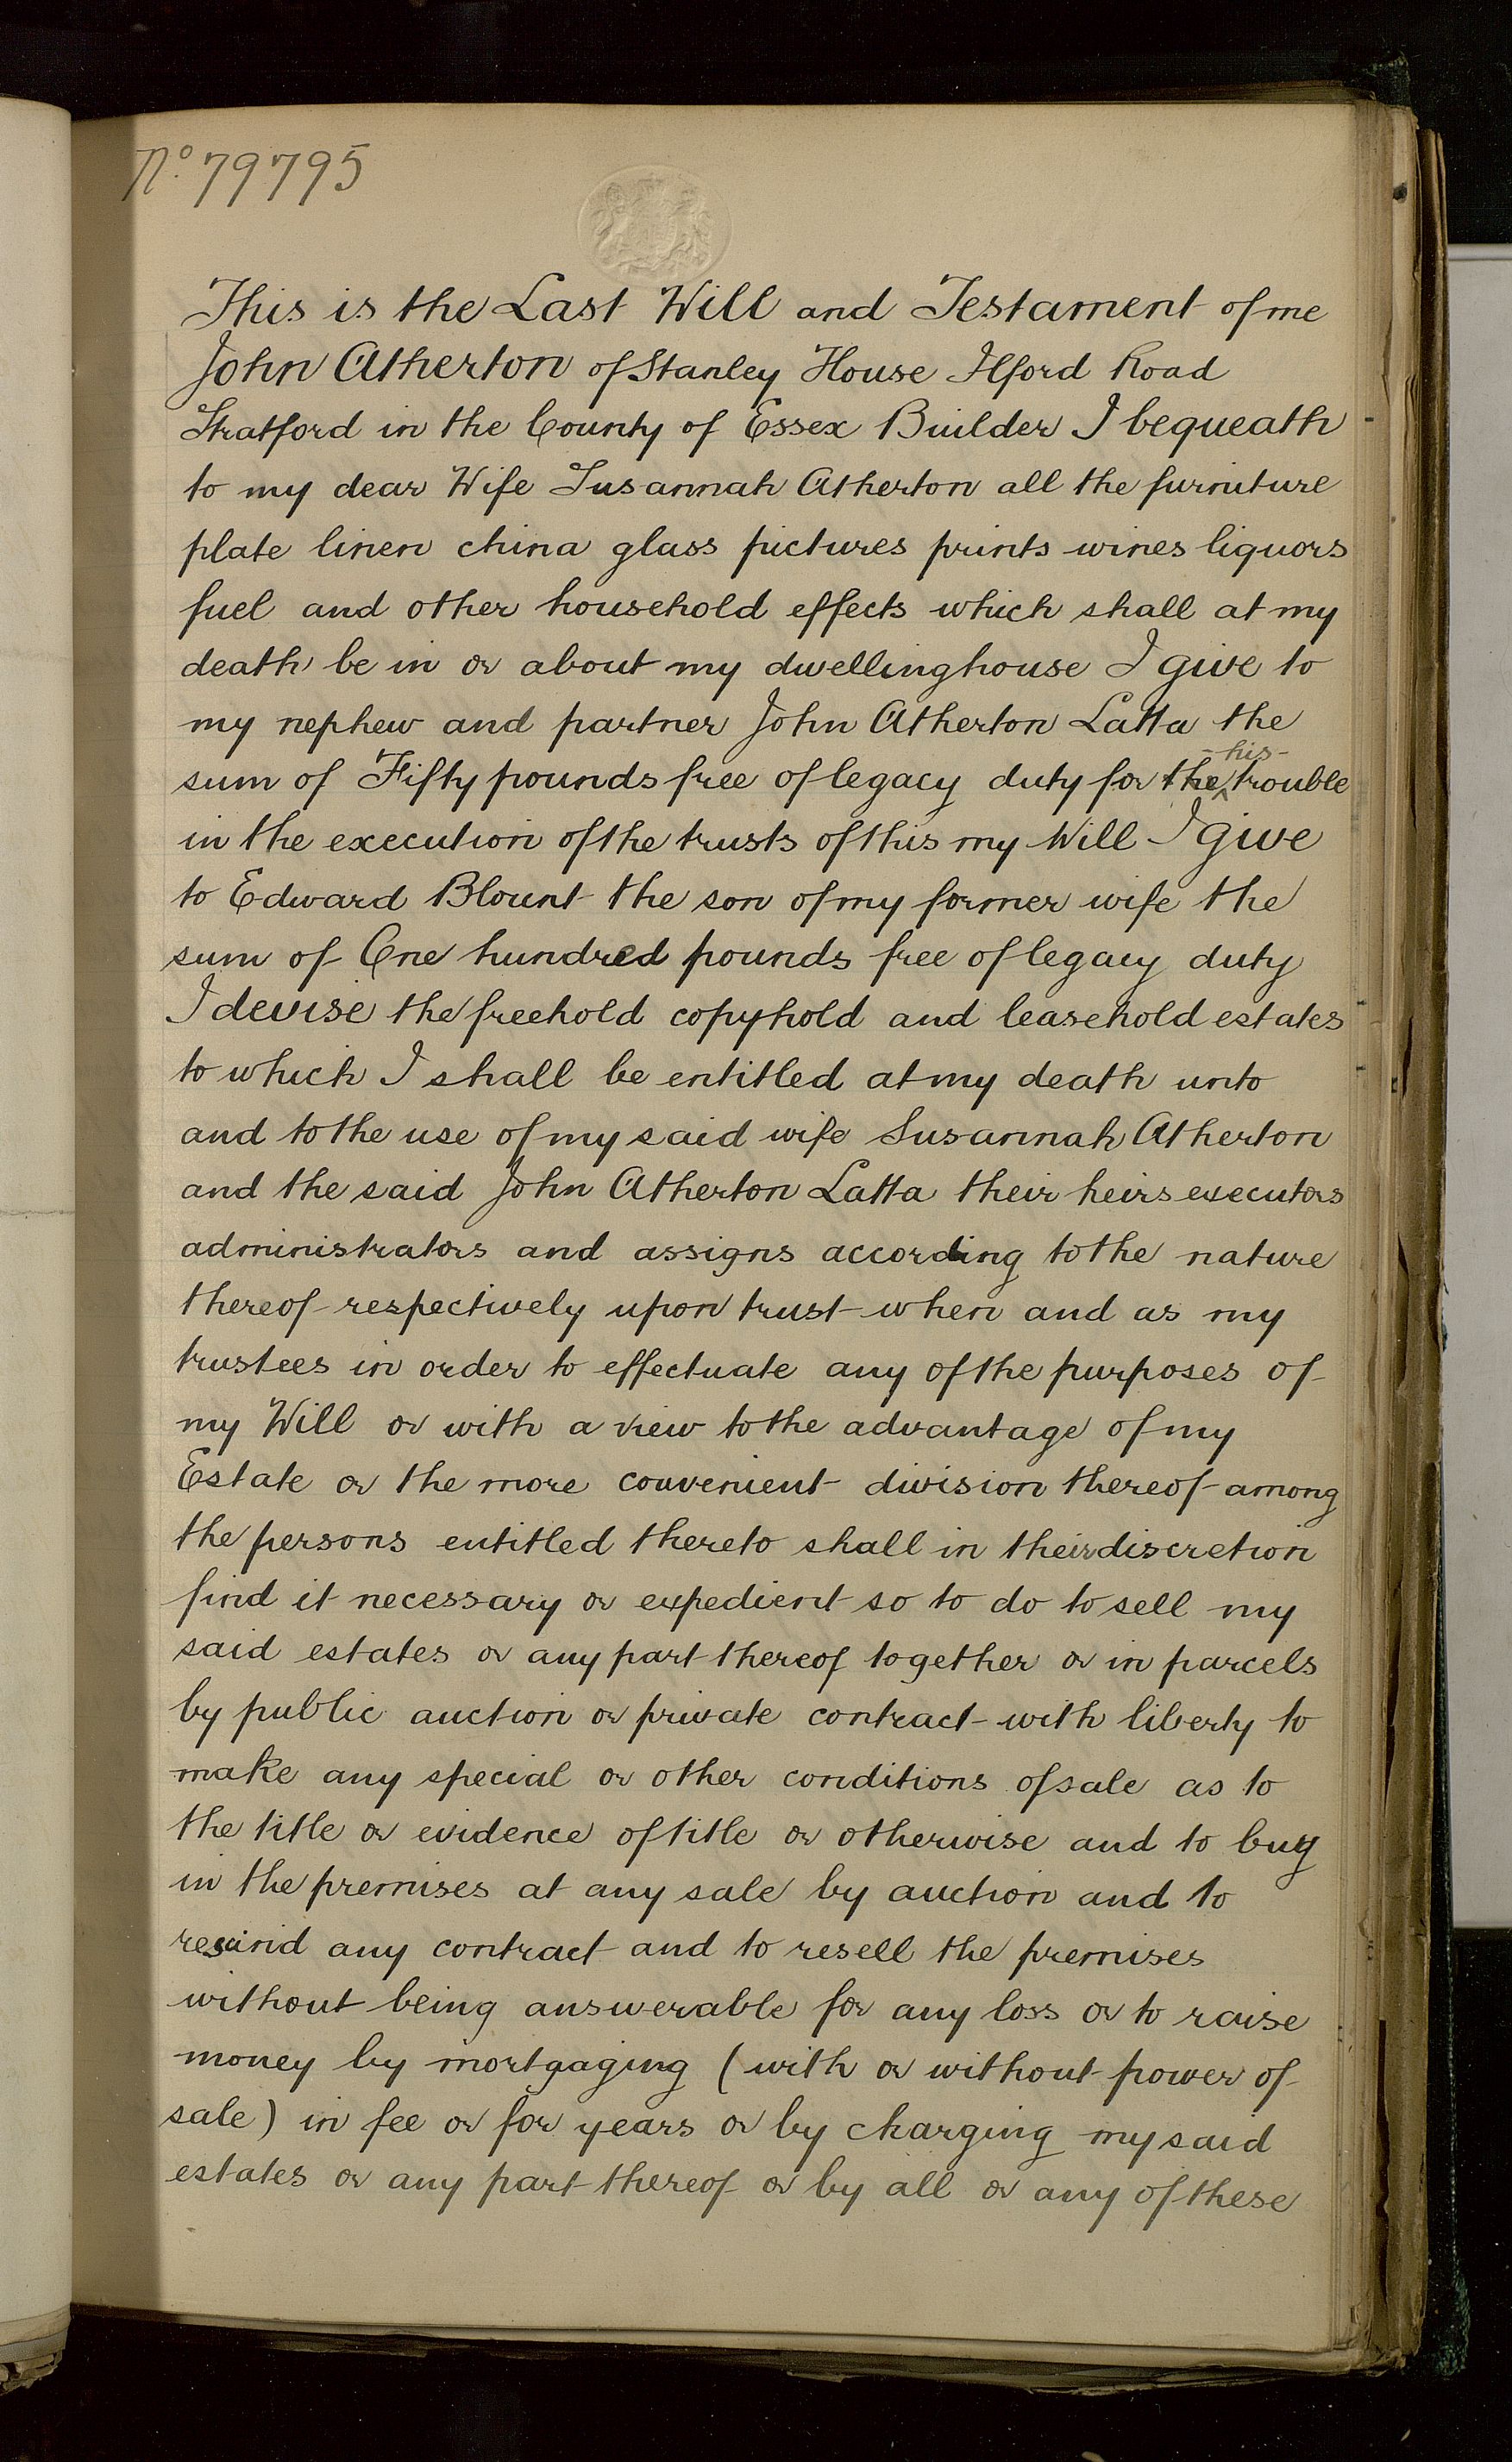 No. 79795
This is the Last Will and Testament of me
John Atherton of Stanley House Ilford Road
Stratford in the County of Essex Builder I bequeath
to my dear Wife Susannah Atherton all the furniture
plate linen china glass pictures prints wines liquors
fuel and other household effects which shall at my
death be in or about my dwellinghouse I give to
my nephew and partner John Atherton Latta the
sum of Fifty pounds free of legacy duty for the his trouble
in the execution of the trusts of this my Will I give
to Edward Blount the son of my former wife the
sum of One hundred pounds free of legacy duty
I devise the freehold copyhold and leasehold estates
to which I shall be entitled at my death unto
and to the use of my said wife Susannah Atherton
and the said John Atherton Latta their heirs executors
administrators and assigns according to the nature
thereof respectively upon trust when and as my
trustees in order to effectuate any of the purposes of
my Will or with a view to the advantage of my
Estate or the more convenient division thereof among
the persons entitled thereto shall in their discretion
find it necessary or expedient so to do to sell my
said estates or any part thereof together or in parcels
by public auction or private contract with liberty to
make any special or other conditions of sale as to
the title or evidence of title or otherwise and to buy
in the premises at any sale by auction and to
rescind any contract and to resell the premises
without being answerable for any loss or to raise
money by mortgaging (with or without power of
sale) in fee or for years or by charging my said
estates or any part thereof or by all or any of these